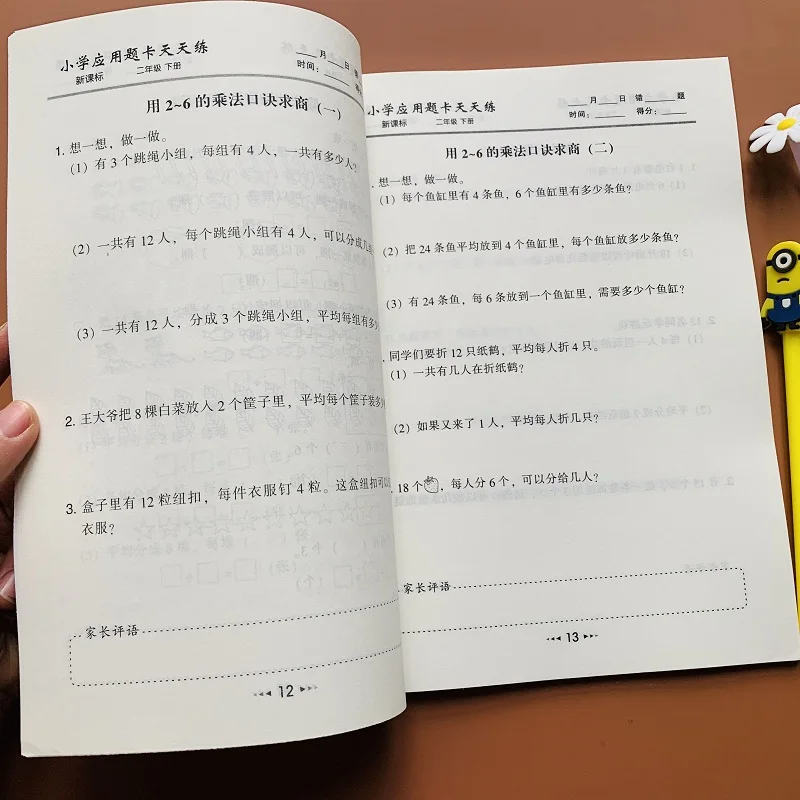 小学应用题卡天天练
新课标 二年级 下册
月 日
时间：
用2~6的乘法口诀求商（一）
1. 想一想，做一做。
（1）有3个跳绳小组，每组有4人，一共有多少人？
（2）一共有12人，每个跳绳小组有4人，可以分成几
（3）一共有12人，分成3个跳绳小组，平均每组有多少
2. 王大爷把8棵白菜放入2个筐子里，平均每个筐子装多
3. 盒子里有12粒纽扣，每件衣服钉4粒。这盒纽扣可以
衣服？
家长评语
12
小学应用题卡天天练
新课标 二年级 下册
月 日 错 题
时间： 得分：
用2~6的乘法口诀求商（二）
. 想一想，做一做。
（1）每个鱼缸里有4条鱼，6个鱼缸里有多少条鱼？
（2）把24条鱼平均放到4个鱼缸里，每个鱼缸放多少条鱼？
（3）有24条鱼，每6条放到一个鱼缸里，需要多少个鱼缸？
. 同学们要折12只纸鹤，平均每人折4只。
（1）一共有几人在折纸鹤？
（2）如果又来了1人，平均每人折几只？
. 18个 ，每人分6个，可以分给几人？
家长评语
13